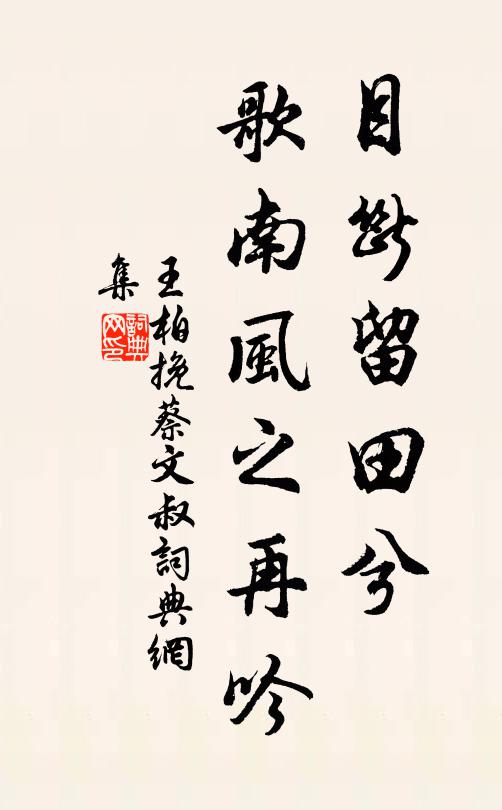 目斷留田兮
歌南風之再吟
王柏挽蔡文叔詞典網
集
詞典
网印